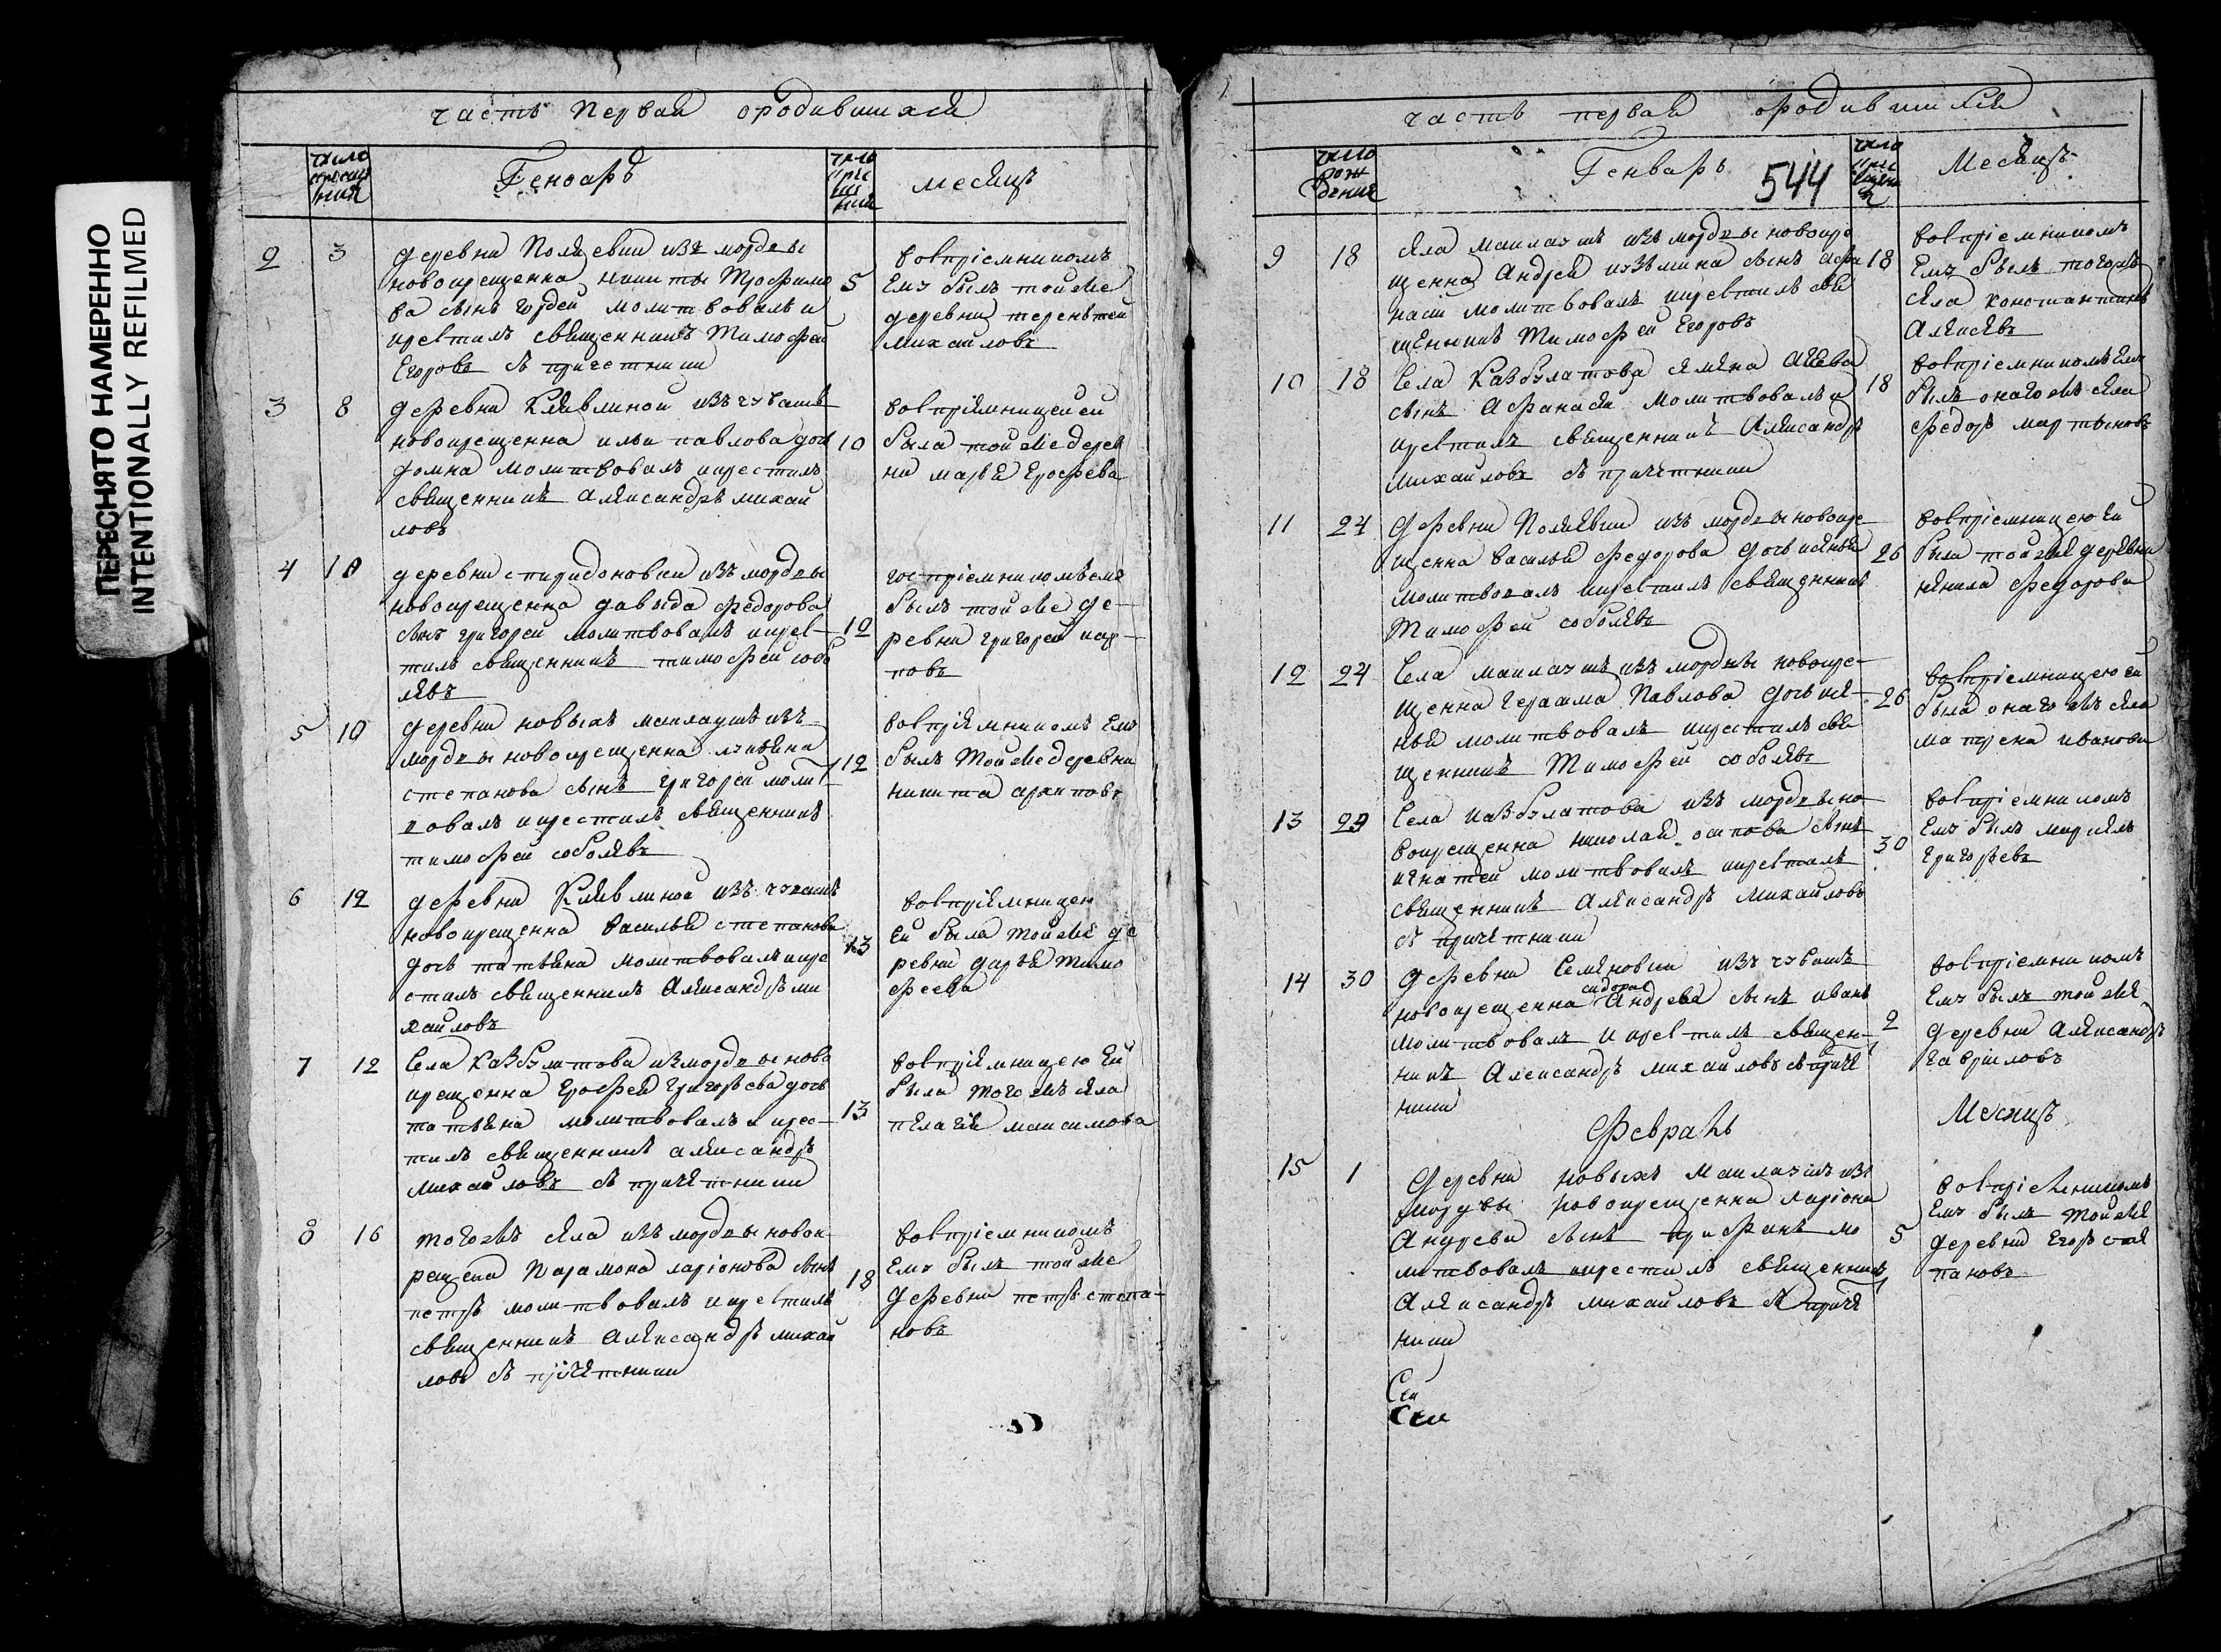 ПЕРЕСНЯТО НАМЕРЕННО
INTENTIONALLY REFILMED
часть Первая ородившихся
число
Генварь
число
месяцъ
2 3
деревни Поляевки изъ мордвы
новокрещенна никиты Трофимо
ва сынъ гордей молитвовалъ и
крестилъ священникъ Тимофей
Егоровъ съ причетники
5
воспріемникомъ
Ему былъ той же
деревни терентей
михайловъ
3 8
деревни Клявлиной изъ чувашъ
новокрещенна ильи павлова дочь
домна молитвовалъ икрестилъ
священникъ Александръ михай
ловъ
10
воспріямницей ей
была той же дерев
ни марья Ерофева
4 10
деревни спиридоновки изъ мордвы
новокрещенна давыда федорова
сынъ григорей молитвовалъ икрес-
тилъ священникъ тимофей собо
левъ
12
воспріемникомъ ему
былъ той же де-
ревни григорей кар-
повъ
5 10
деревни новыхъ маклаушъ изъ
мордвы новокрещенна лукьяна
степанова сынъ григорей моли
твовалъ икрестилъ священникъ
тимофей соболевъ
12
воспріямникомъ Ему
былъ Той же деревни
никита архиповъ
6 12
деревни Клявлиной изъ чувашъ
новокрещенна Василья степанова
дочь татьяна молитвовалъ икре
стилъ священникъ Александръ ми
хайловъ
13
воспріямницею
Ей была той же де
ревни дарья Тимо
феева
7 12
Села Казбулатова изъ мордвы ново
крещенна Ерофея Григорьева дочь
татьяна молитвовалъ и крес-
тилъ священникъ александръ
Михайловъ съ причетники
13
воспріямницею Ей
была того жъ села
пелагія максимова
8 16
того жъ села изъ мордвы новок-
рещена Парамона ларіонова сынъ
петръ молитвовалъ икрестилъ
священникъ Александръ михай
ловъ съ причетники
18
воспріемникомъ
Ему былъ той же
деревни петръ степа-
новъ
часть первая ородившихся
число
рож
дения
Генварь
544
число
Месяцъ
9 18
села маклаушъ изъ мордвы новокре
щенна Андрея кузьмина сынъ афа
насій молитвовалъ икрестилъ свя
щенникъ Тимофей Егоровъ
18
воспріемникомъ
Ему былъ того жъ
села константинъ
Алексѣевъ
10 18
Села Казбулатова
сынъ Афанасій молитвовалъ и
крестилъ священникъ Александръ
Михайловъ съ причетники
18
воспріемникомъ Ему
былъ онаго жъ села
федоръ мартыновъ
11 24
деревни Поляевки изъ мордвы новокре
щенна василья федорова дочь ксенья
молитвовалъ икрестилъ священникъ
Тимофей соболевъ
26
воспріемницею Ей
была той же деревни
ненила федорова
12 24
Села маклаушъ изъ мордвы новокре-
щенна Павлова дочь ксе-
нья молитвовалъ икрестилъ свя
щенникъ Тимофей соболевъ
26
воспріемницею ей
была онаго жъ села
матрена иванова
13 29
Села казбулатова изъ мордвы но
вокрещенна николая осипова сынъ
игнатей молитвовалъ икрестилъ
священникъ Александръ Михайловъ
съ причетники
30
воспріемникомъ
Ему былъ маркелъ
григорьевъ
14 30
деревни Семеновки изъ чувашъ
сидора
новокрещенна Андреева сынъ иванъ
молитвовалъ и крестилъ священ-
никъ Александръ михайловъ съ приче
ники
2
воспріемникомъ
Ему былъ той же
деревни Александръ
гавриловъ
Февраль
Месяцъ
15 1
деревни новыхъ маклаушъ изъ
мордвы новокрещенна ларіона
Андреева сынъ трофимъ мо
литвовалъ икрестилъ священникъ
Александръ михайловъ съ приче
ники
5
воспріемникомъ
Ему былъ той же
деревни Егоръ сте
пановъ
Сел
Сел